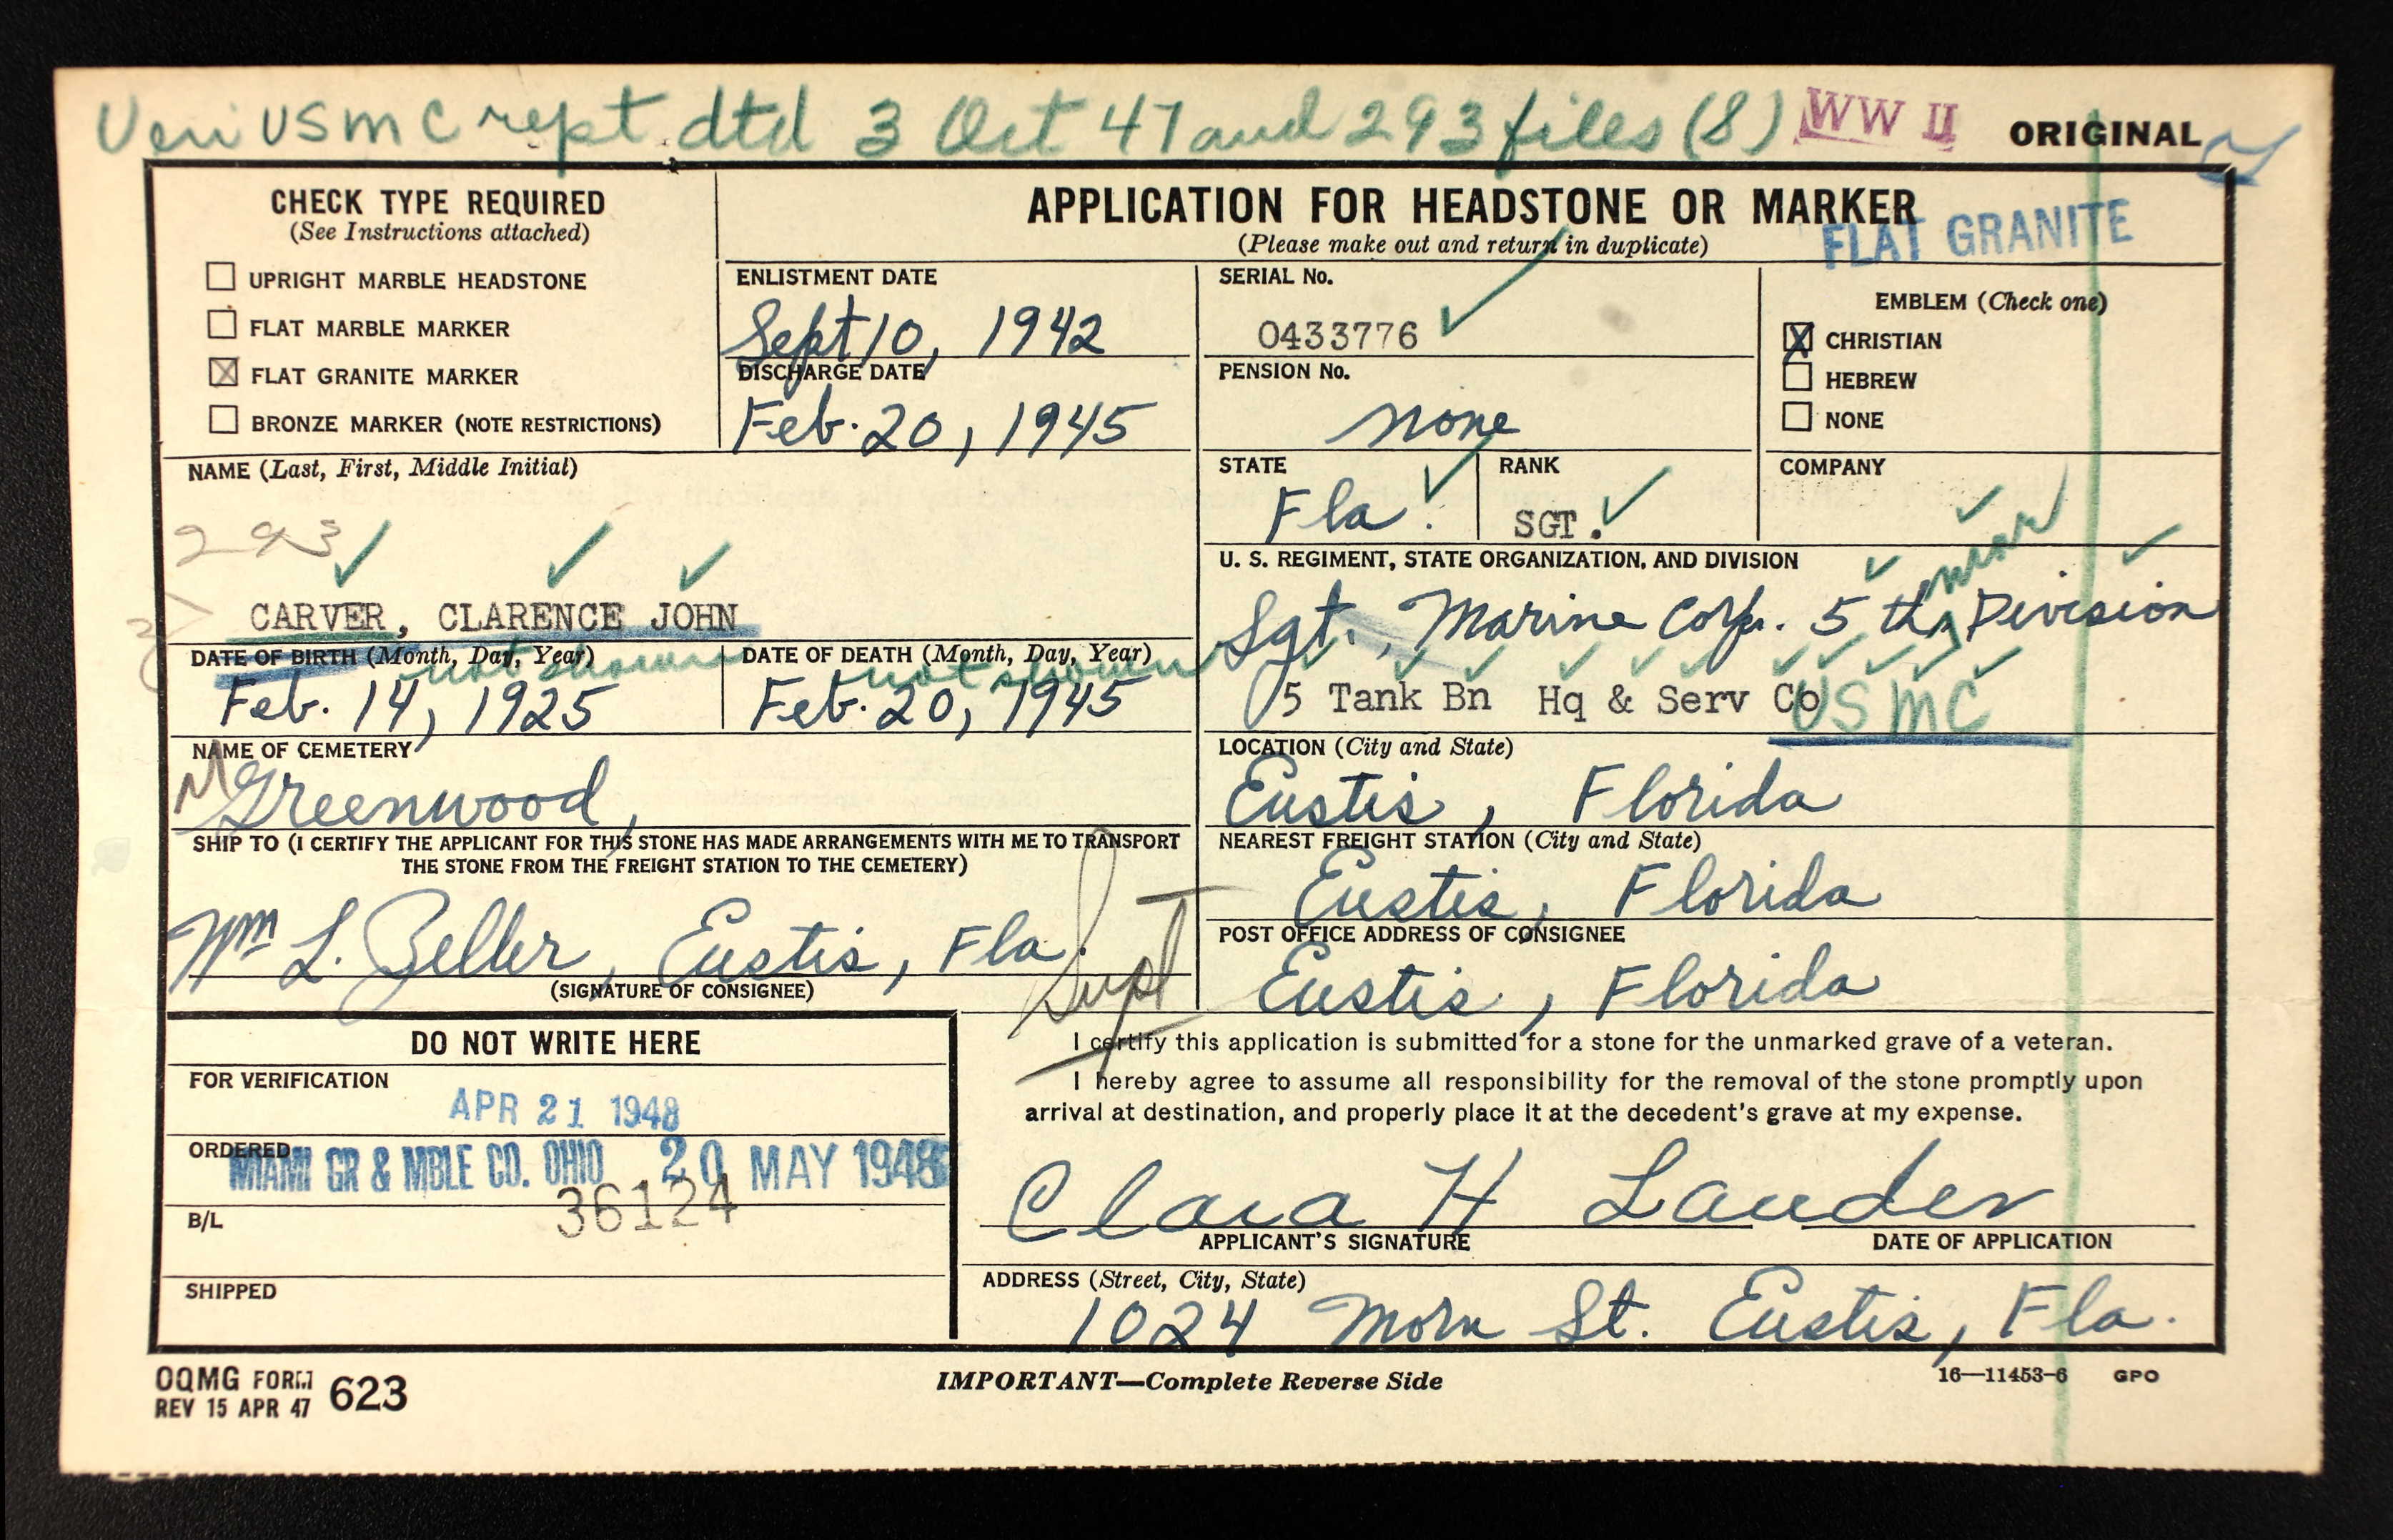 Veri USMC rept dtd 3 Oct 47 and 293 files (8) WW II ORIGINAL
CHECK TYPE REQUIRED
(See Instructions attached)
UPRIGHT MARBLE HEADSTONE
FLAT MARBLE MARKER
FLAT GRANITE MARKER
BRONZE MARKER (NOTE RESTRICTIONS)
APPLICATION FOR HEADSTONE OR MARKER
(Please make out and return in duplicate)
FLAT GRANITE
ENLISTMENT DATE
Sept 10, 1942
DISCHARGE DATE
Feb. 20, 1945
SERIAL No.
0433776
PENSION No.
none
EMBLEM (Check one)
CHRISTIAN
HEBREW
NONE
NAME (Last, First, Middle Initial)
293
CARVER, CLARENCE JOHN
STATE
Fla.
RANK
SGT.
COMPANY
U. S. REGIMENT, STATE ORGANIZATION, AND DIVISION
Sgt., Marine Corp. 5 th Division
5 Tank Bn Hq & Serv Co USMC
DATE OF BIRTH (Month, Day, Year)
not shown
Feb. 14, 1925
DATE OF DEATH (Month, Day, Year)
not shown
Feb. 20, 1945
NAME OF CEMETERY
Greenwood,
LOCATION (City and State)
Eustis, Florida
SHIP TO (I CERTIFY THE APPLICANT FOR THIS STONE HAS MADE ARRANGEMENTS WITH ME TO TRANSPORT
THE STONE FROM THE FREIGHT STATION TO THE CEMETERY)
Wm L. Zeller, Eustis, Fla.
Supt
(SIGNATURE OF CONSIGNEE)
NEAREST FREIGHT STATION (City and State)
Eustis, Florida
POST OFFICE ADDRESS OF CONSIGNEE
Eustis, Florida
DO NOT WRITE HERE
FOR VERIFICATION
APR 21 1948
ORDERED
MIAMI GR & MBLE CO. OHIO 20 MAY 1948
36124
B/L
SHIPPED
I certify this application is submitted for a stone for the unmarked grave of a veteran.
I hereby agree to assume all responsibility for the removal of the stone promptly upon
arrival at destination, and properly place it at the decedent's grave at my expense.
Clara H Lauder
APPLICANT'S SIGNATURE
DATE OF APPLICATION
ADDRESS (Street, City, State)
1024 Morn St. Eustis, Fla.
OQMG FORM 623
REV 15 APR 47
IMPORTANT—Complete Reverse Side
16—11453-6 GPO